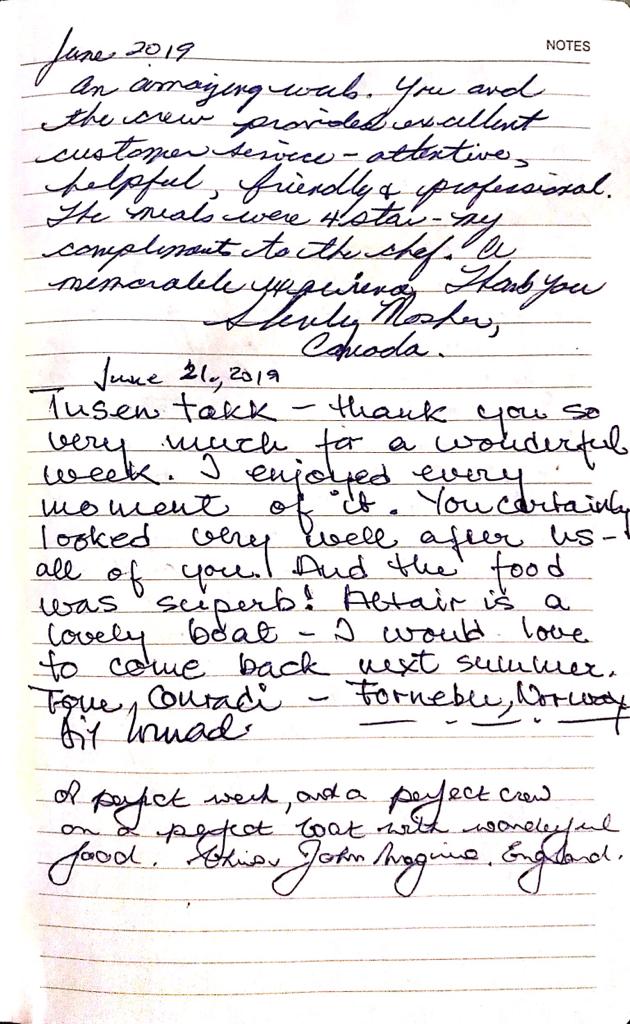 NOTES
June 2019
An amazing week. You and
the crew provided excellent
customer service - attentive,
helpful, friendly & professional.
The meals were 4 star - my
compliments to the chef. A
memorable experience Thank you
Shirley Mosher,
Canada.
June 21., 2019
Tusen takk - thank you so
very much for a wonderful
week. I enjoyed every
moment of it. You certainly
looked very well after us -
all of you. And the food
was superb! Altair is a
lovely boat - I would love
to come back next summer.
Tone, Conradi - Fornebu, Norway
A perfect week, and a perfect crew
on a perfect boat with wonderful
food. John England.